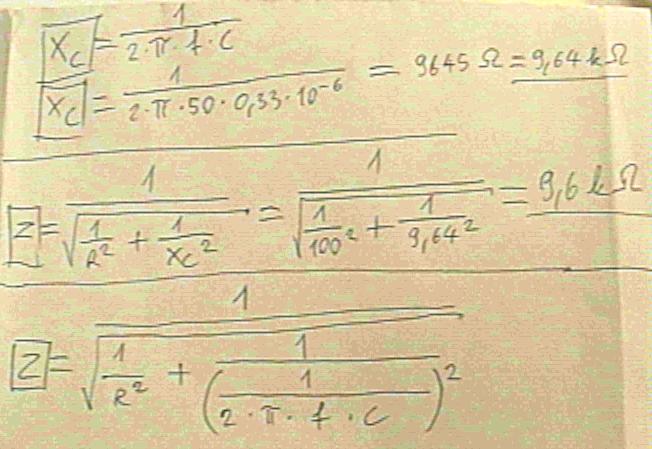 X_C = 1 / (2·π·f·C)
X_C = 1 / (2·π·50·0,33·10^-6) = 9645 Ω = 9,64 kΩ
Z = 1 / √(1/R² + 1/X_C²) = 1 / √(1/100² + 1/9,64²) = 9,6 kΩ
Z = 1 / √(1/R² + 1/(1/(2·π·f·C))²)